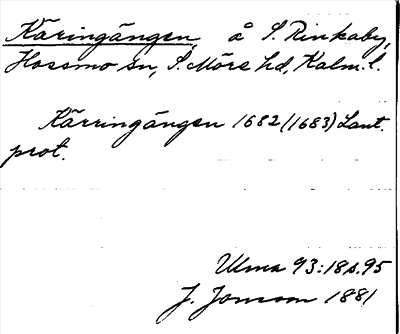 Käringängen, å S. Rinkaby,
Hossmo sn, S. Möre hd, Kalm. l.
Kärringängen 1682 (1683) Lant.
prot.
Ulma 93:18 s. 95
J. Jonsson 1881